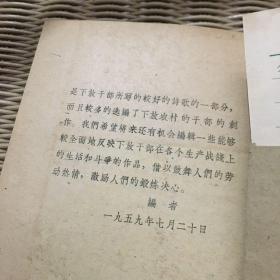 是下放干部所寫的較好的詩歌的一部分,
而且較多的选編了下放农村的干部的創
作。我們希望将来还有机会編輯一些能够
較全面地反映下放干部在各个生产战綫上
的生活和斗爭的作品,借以鼓舞人們的劳
动热情,激励人們的鍛炼决心。
編者
一九五九年七月二十日